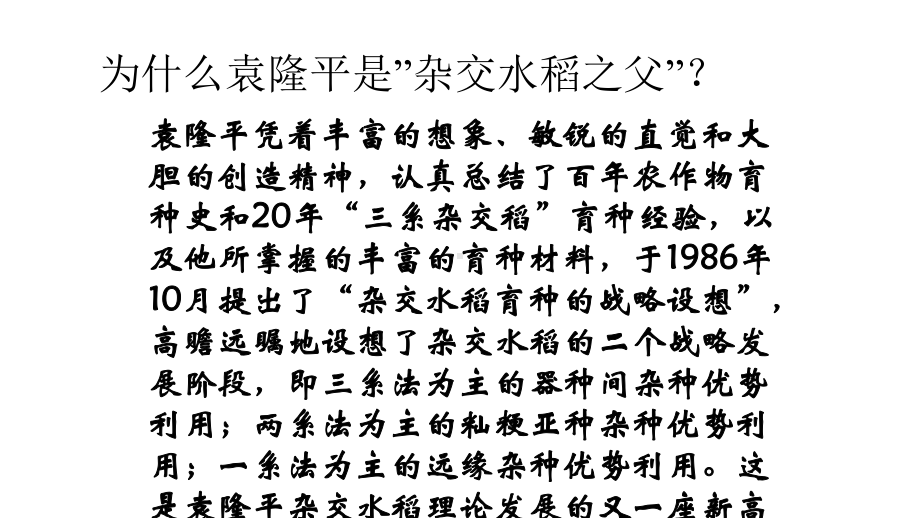 为什么袁隆平是”杂交水稻之父”？
袁隆平凭着丰富的想象、敏锐的直觉和大
胆的创造精神，认真总结了百年农作物育
种史和20年“三系杂交稻”育种经验，以
及他所掌握的丰富的育种材料，于1986年
10月提出了“杂交水稻育种的战略设想”，
高瞻远瞩地设想了杂交水稻的二个战略发
展阶段，即三系法为主的器种间杂种优势
利用；两系法为主的籼粳亚种杂种优势利
用；一系法为主的远缘杂种优势利用。这
是袁隆平杂交水稻理论发展的又一座新高